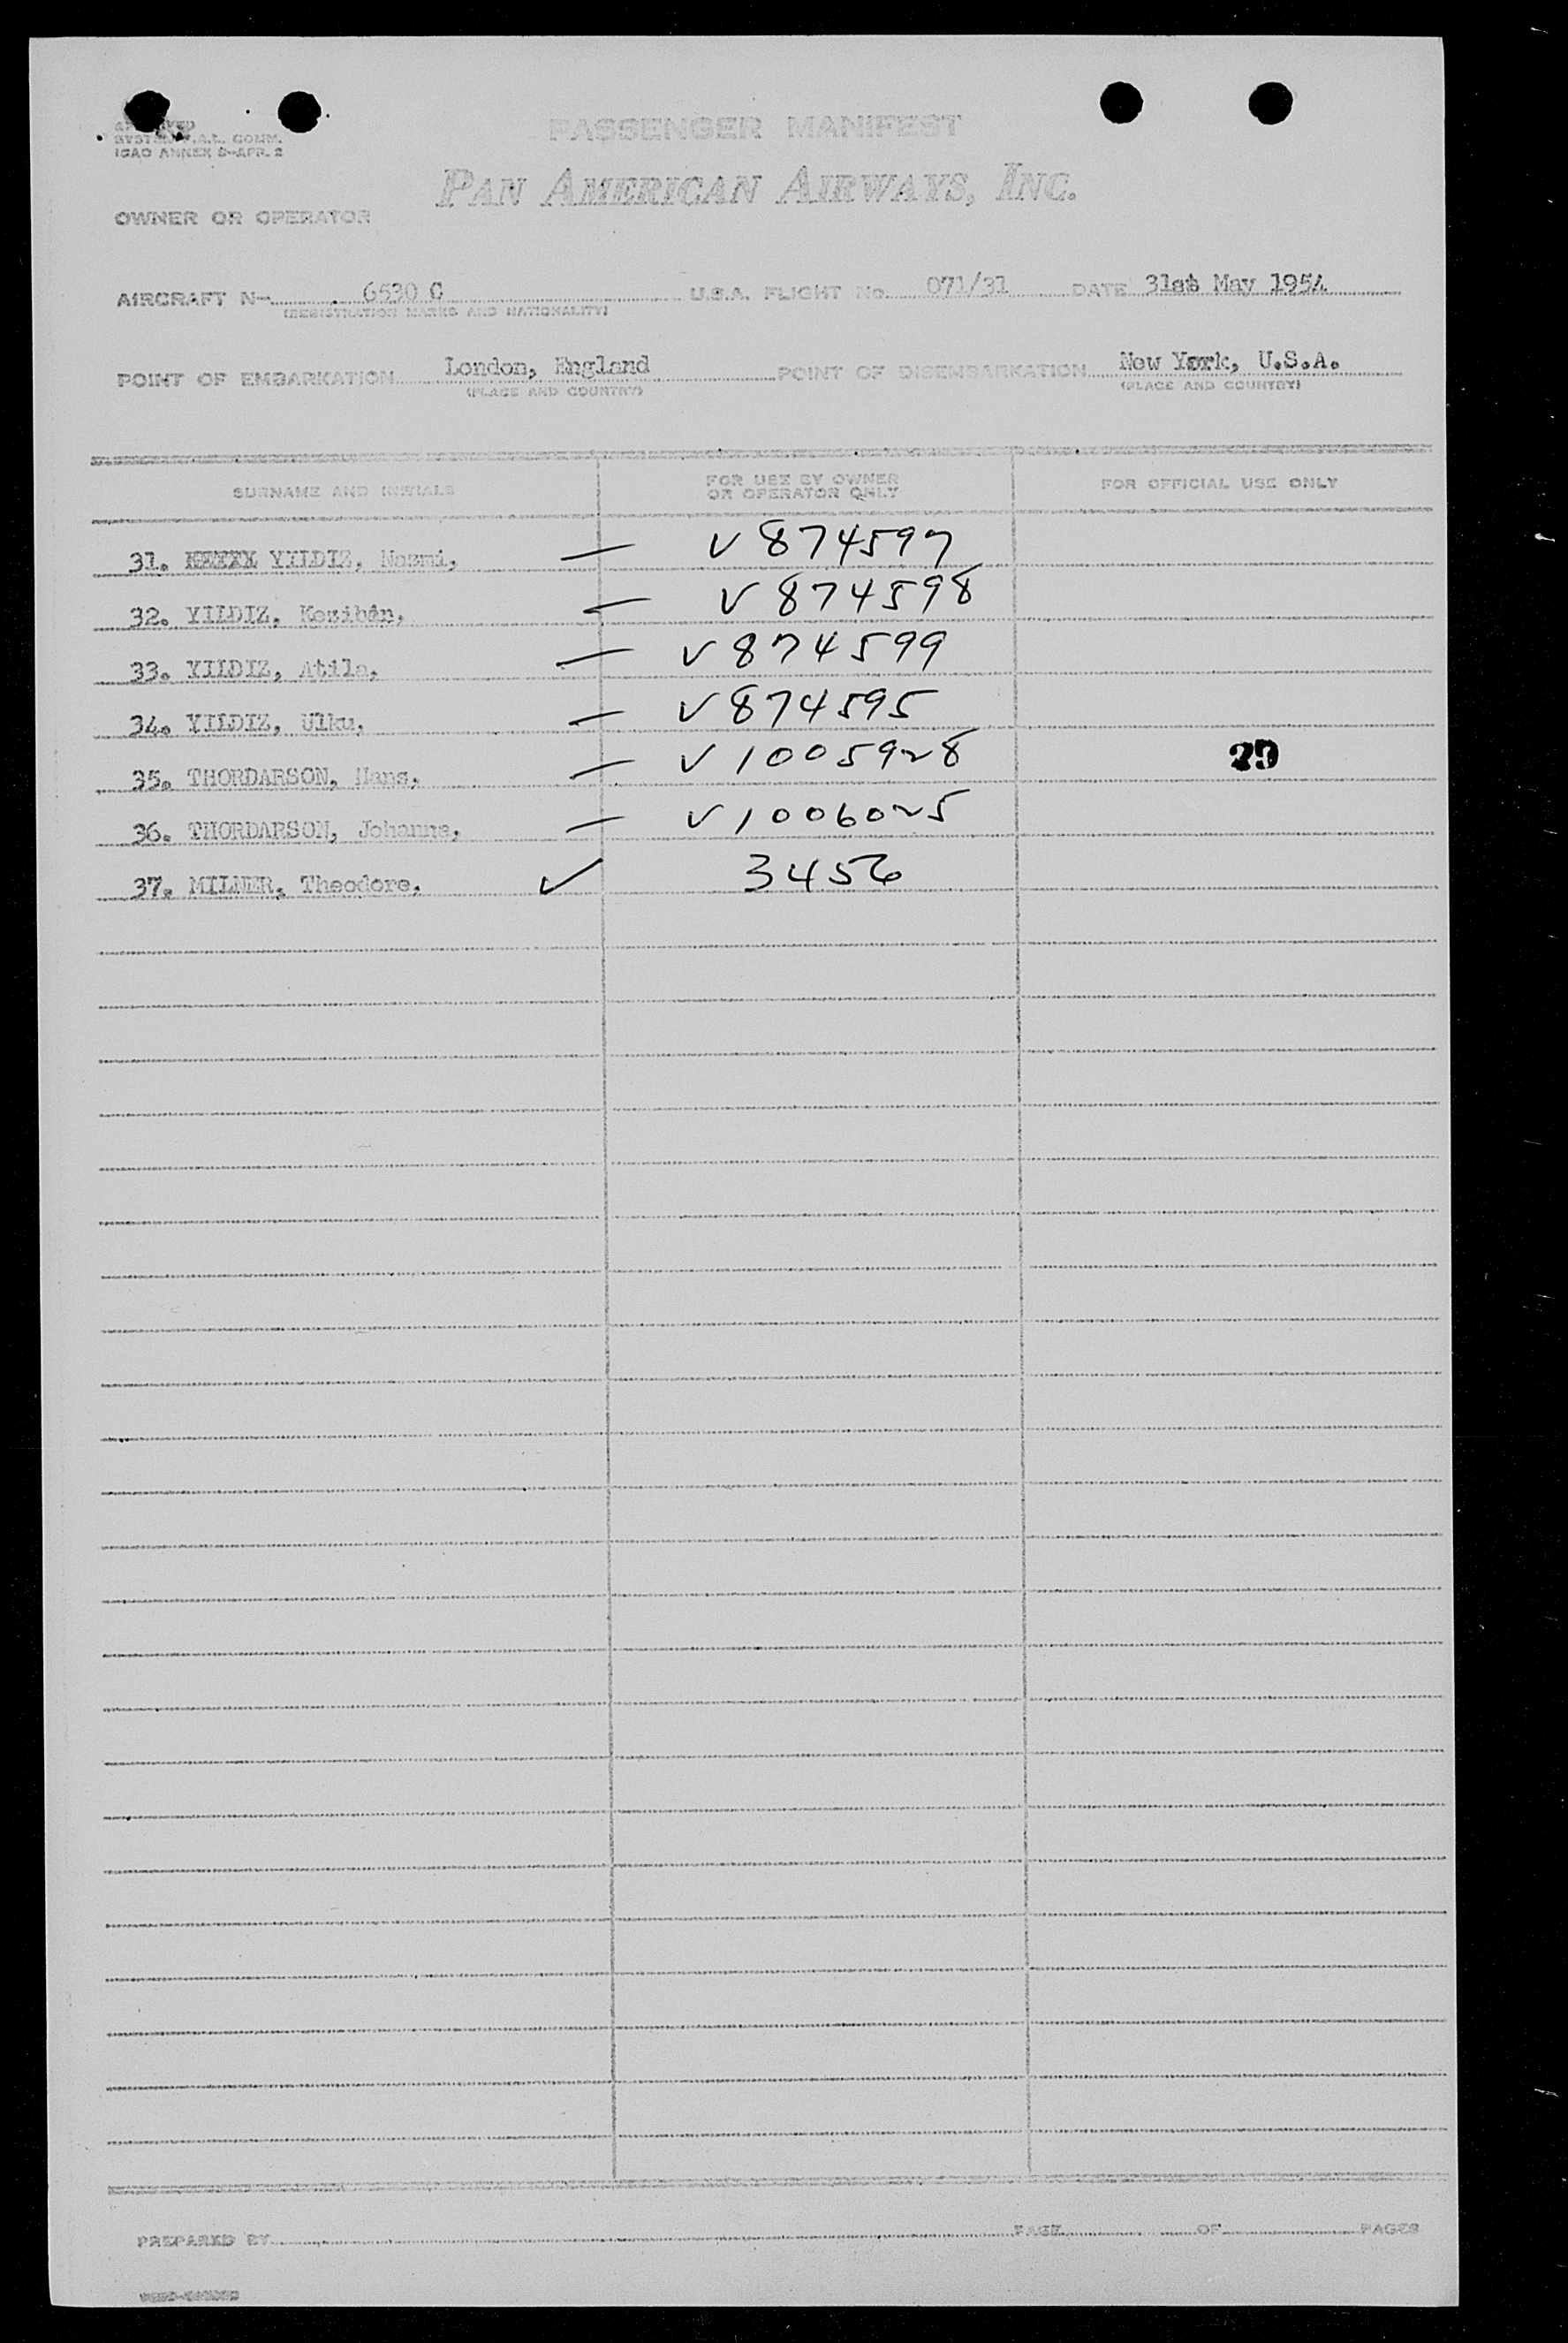 PASSENGER MANIFEST
SYSTEM F.A.L. COMM.
ICAO ANNEX 9-APR. 2
PAN AMERICAN AIRWAYS, INC.
OWNER OR OPERATOR
AIRCRAFT N- 6530 C U.S.A. FLIGHT No. 071/31 DATE 31st May 1954
(REGISTRATION MARKS AND NATIONALITY)
POINT OF EMBARKATION London, England POINT OF DISEMBARKATION New York, U.S.A.
(PLACE AND COUNTRY) (PLACE AND COUNTRY)
SURNAME AND INITIALS FOR USE BY OWNER OR OPERATOR ONLY FOR OFFICIAL USE ONLY
31. YILDIZ, Nazmi, — V 874597
32. YILDIZ, Keziban, — V 874598
33. YILDIZ, Atila, — V 874599
34. YILDIZ, Ulku, — V 874595
35. THORDARSON, Hans, — V 1005928 29
36. THORDARSON, Johanna, — V 1006025
37. MILNER, Theodore. ✓ 3456
PREPARED BY PAGE OF PAGES